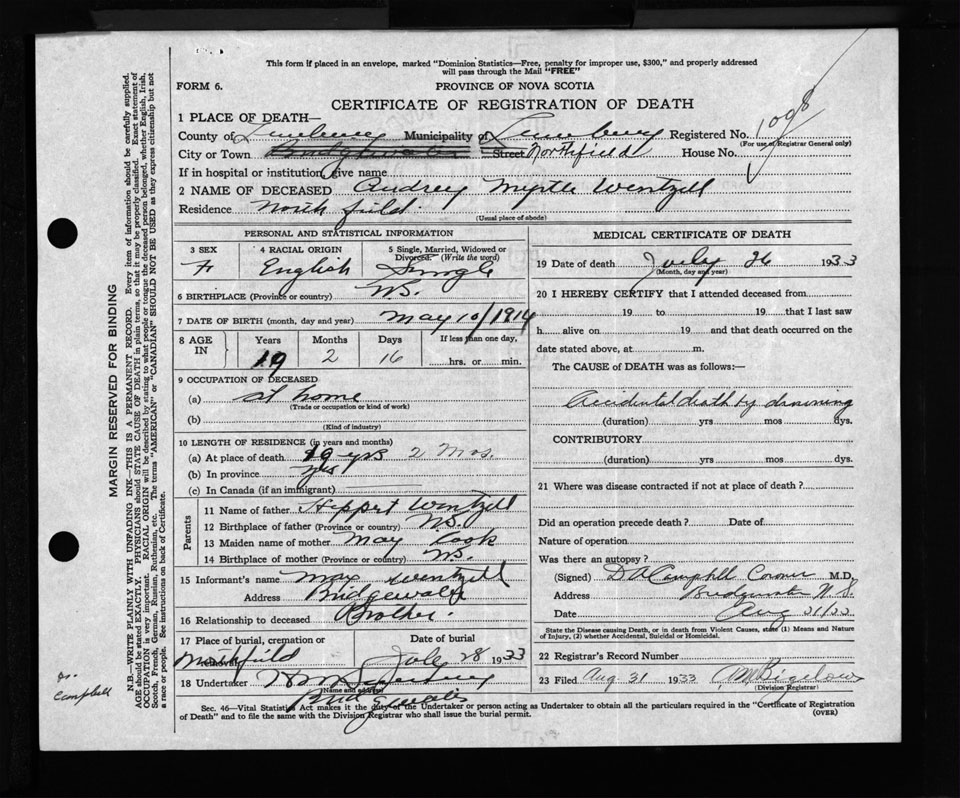 This form if placed in an envelope, marked "Dominion Statistics—Free, penalty for improper use, $300," and properly addressed
will pass through the Mail "FREE"
FORM 6.
PROVINCE OF NOVA SCOTIA
CERTIFICATE OF REGISTRATION OF DEATH
1 PLACE OF DEATH—
County of Lunenburg Municipality of Lunenburg Registered No. 1098
(For use of Registrar General only)
City or Town Bridgewater Street Northfield House No.
If in hospital or institution, give name
2 NAME OF DECEASED Audrey Myrtle Wentzell
Residence North field
(Usual place of abode)
PERSONAL AND STATISTICAL INFORMATION
3 SEX 4 RACIAL ORIGIN 5 Single, Married, Widowed or Divorced. (Write the word)
F English Single
6 BIRTHPLACE (Province or country) N.S.
7 DATE OF BIRTH (month, day and year) May 10/1914
8 AGE IN Years Months Days If less than one day,
19 2 16 hrs. or min.
9 OCCUPATION OF DECEASED
(a) at home
(Trade or occupation or kind of work)
(b)
(Kind of industry)
10 LENGTH OF RESIDENCE (in years and months)
(a) At place of death 19 yrs 2 Mos.
(b) In province yes
(c) In Canada (if an immigrant)
Parents
11 Name of father Wentzell
12 Birthplace of father (Province or country) N.S.
13 Maiden name of mother May Cook
14 Birthplace of mother (Province or country) N.S.
15 Informant's name Max Wentzell
Address Bridgewater
16 Relationship to deceased Brother
17 Place of burial, cremation or removal Date of burial
Northfield July 28 1933
18 Undertaker
(Name and address)
Bridgewater
MEDICAL CERTIFICATE OF DEATH
19 Date of death July 26 1933
(Month, day and year)
20 I HEREBY CERTIFY that I attended deceased from
19 to 19 that I last saw
h alive on 19 and that death occurred on the
date stated above, at m.
The CAUSE of DEATH was as follows:—
Accidental death by drowning
(duration) yrs mos dys.
CONTRIBUTORY
(duration) yrs mos dys.
21 Where was disease contracted if not at place of death?
Did an operation precede death? Date of
Nature of operation
Was there an autopsy?
(Signed) D A Campbell Coroner M.D.
Address Bridgewater N.S.
Date Aug 31/33
State the Disease causing Death, or in death from Violent Causes, state (1) Means and Nature
of Injury, (2) whether Accidental, Suicidal or Homicidal.
22 Registrar's Record Number
23 Filed Aug 31 1933 Bigelow
(Division Registrar)
Sec. 46—Vital Statistics Act makes it the duty of the Undertaker or person acting as Undertaker to obtain all the particulars required in the "Certificate of Registration
of Death" and to file the same with the Division Registrar who shall issue the burial permit.
(OVER)
MARGIN RESERVED FOR BINDING
N.B.—WRITE PLAINLY WITH UNFADING INK—THIS IS A PERMANENT RECORD. Every item of information should be carefully supplied.
AGE should be stated EXACTLY. PHYSICIANS should STATE CAUSE OF DEATH in plain terms, so that it may be properly classified. Exact statement of
OCCUPATION is very important. RACIAL ORIGIN will be described by stating to what people or tongue the deceased person belonged, whether English, Irish,
Scotch, French, German, Russian, Ruthenian, etc. The terms "AMERICAN" or "CANADIAN" SHOULD NOT BE USED as they express citizenship but not
a race or people. See instructions on back of Certificate.
Dr.
Campbell